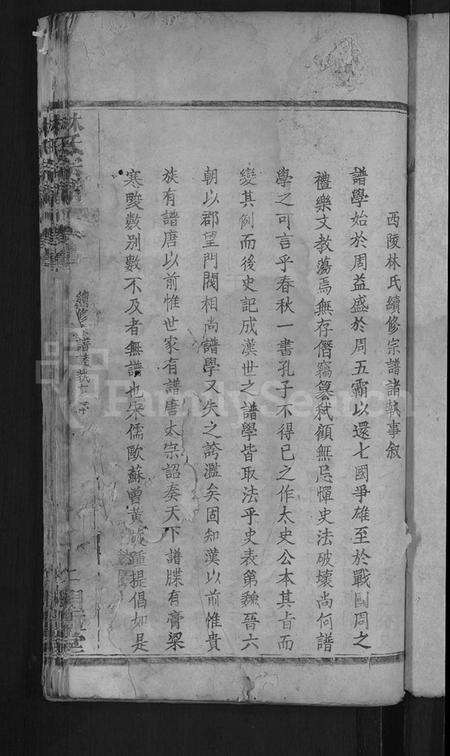 西陵林氏續修宗譜諸執事敘
譜學始於周益盛於周五霸以還七國爭雄至於戰國周之
禮樂文教蕩焉無存僭竊篡弒顧無忌憚史法破壞尚何譜
學之可言乎春秋一書孔子不得已之作太史公本其旨而
變其例而後史記成漢世之譜學皆取法乎史表第魏晉六
朝以郡望門閥相尚譜學又失之誇濫矣固知漢以前惟貴
族有譜唐以前惟世家有譜唐太宗詔奏天下譜牒有膏粱
寒畯數別數不及者無譜也宋儒歐蘇曾黃 踵提倡如是
林氏宗譜
續修宗譜諸執事
FamilySearch